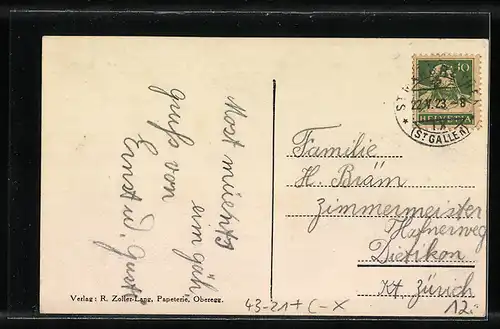 Most
gruss von
Ernst u. Gust
Familie
H. Bräm
Zimmermeister
Hafnerweg
Dietikon
Kt. Zürich
10
HELVETIA
22.V.23.-8
(ST. GALLEN)
Verlag: R. Zoller-Lang, Papeterie, Oberegg.
43-21+C-X
12.-